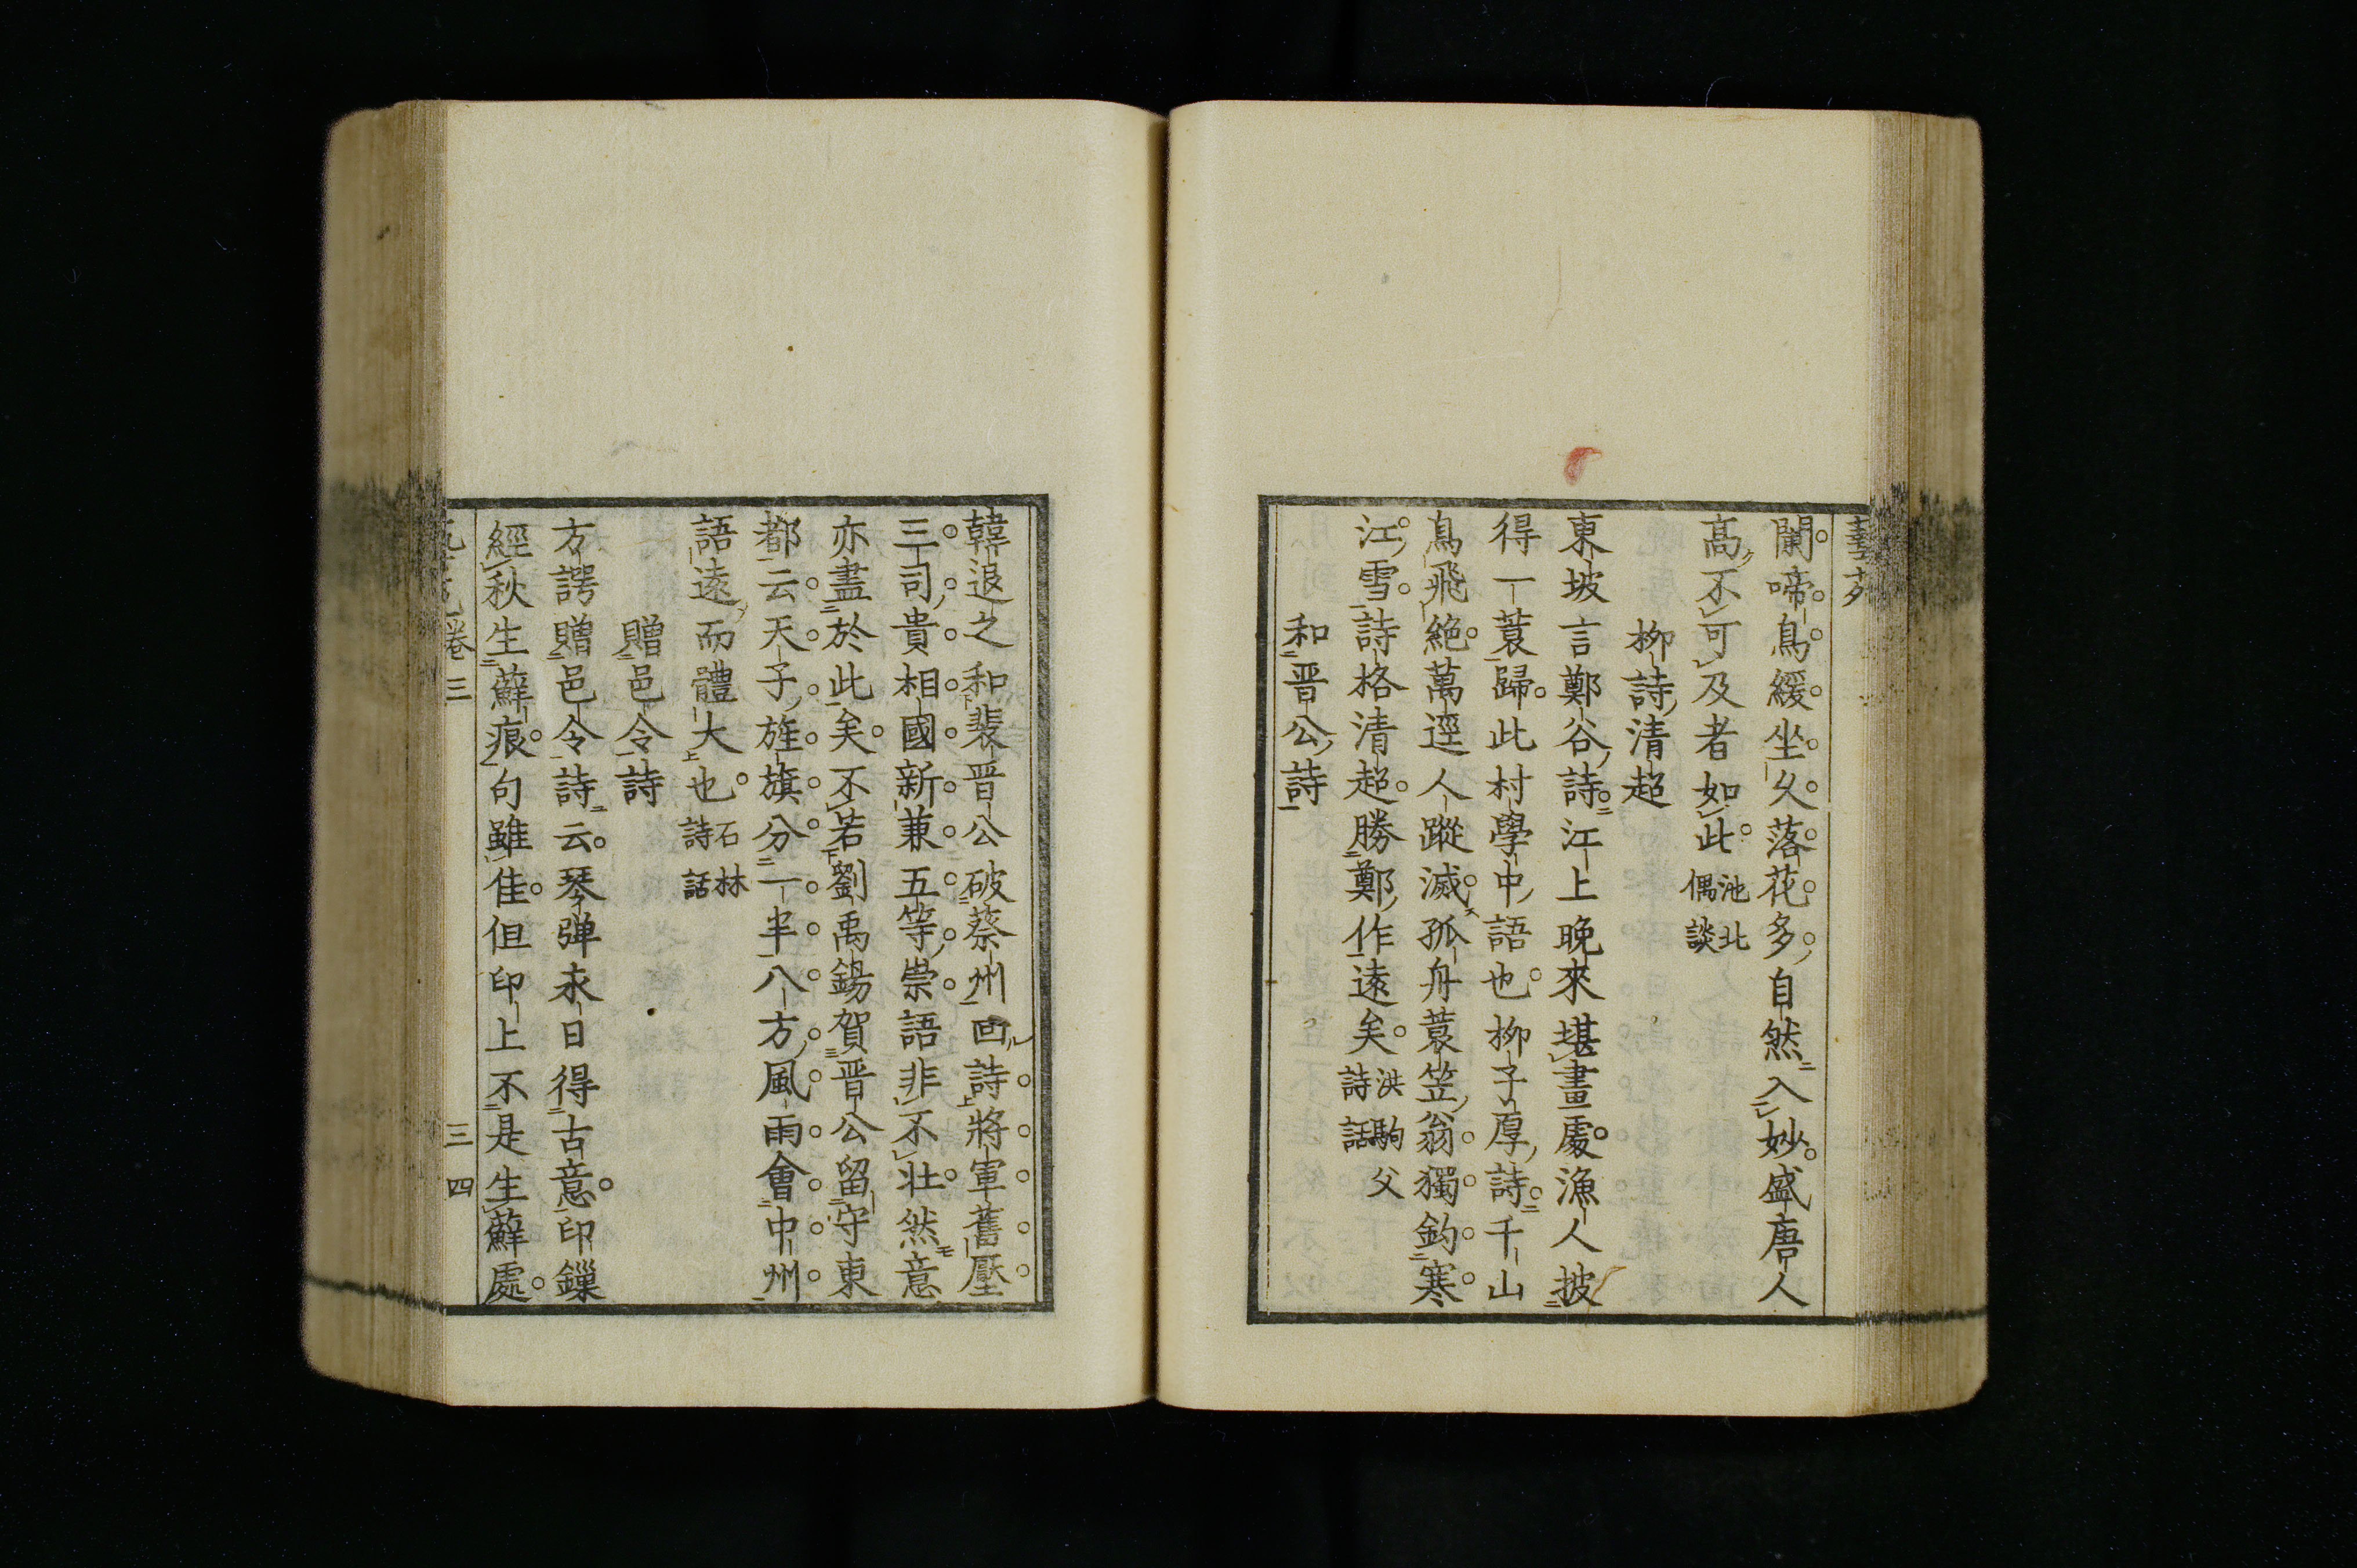 闌啼鳥緩坐久落花多自然入妙盛唐人
高不可及者如此池北偶談
柳詩清超
東坡言鄭谷詩江上晚來堪畫處漁人披
得一蓑歸此村學中語也柳子厚詩千山
鳥飛絕萬逕人蹤滅孤舟蓑笠翁獨釣寒
江雪詩格清超勝鄭作遠矣洪駒父詩話
和晋公詩
韓退之和裴晋公破蔡州回詩將軍舊壓
三司貴相國新兼五等崇語非不壯然意
亦盡於此矣不若劉禹錫賀晋公留守東
都云天子旌旗分一半八方風雨會中州
語遠而體大也石林詩話
贈邑令詩
方諤贈邑令詩云琴弾永日得古意印鏁
經秋生蘚痕句雖佳但印上不是生蘚處
卷三
三四